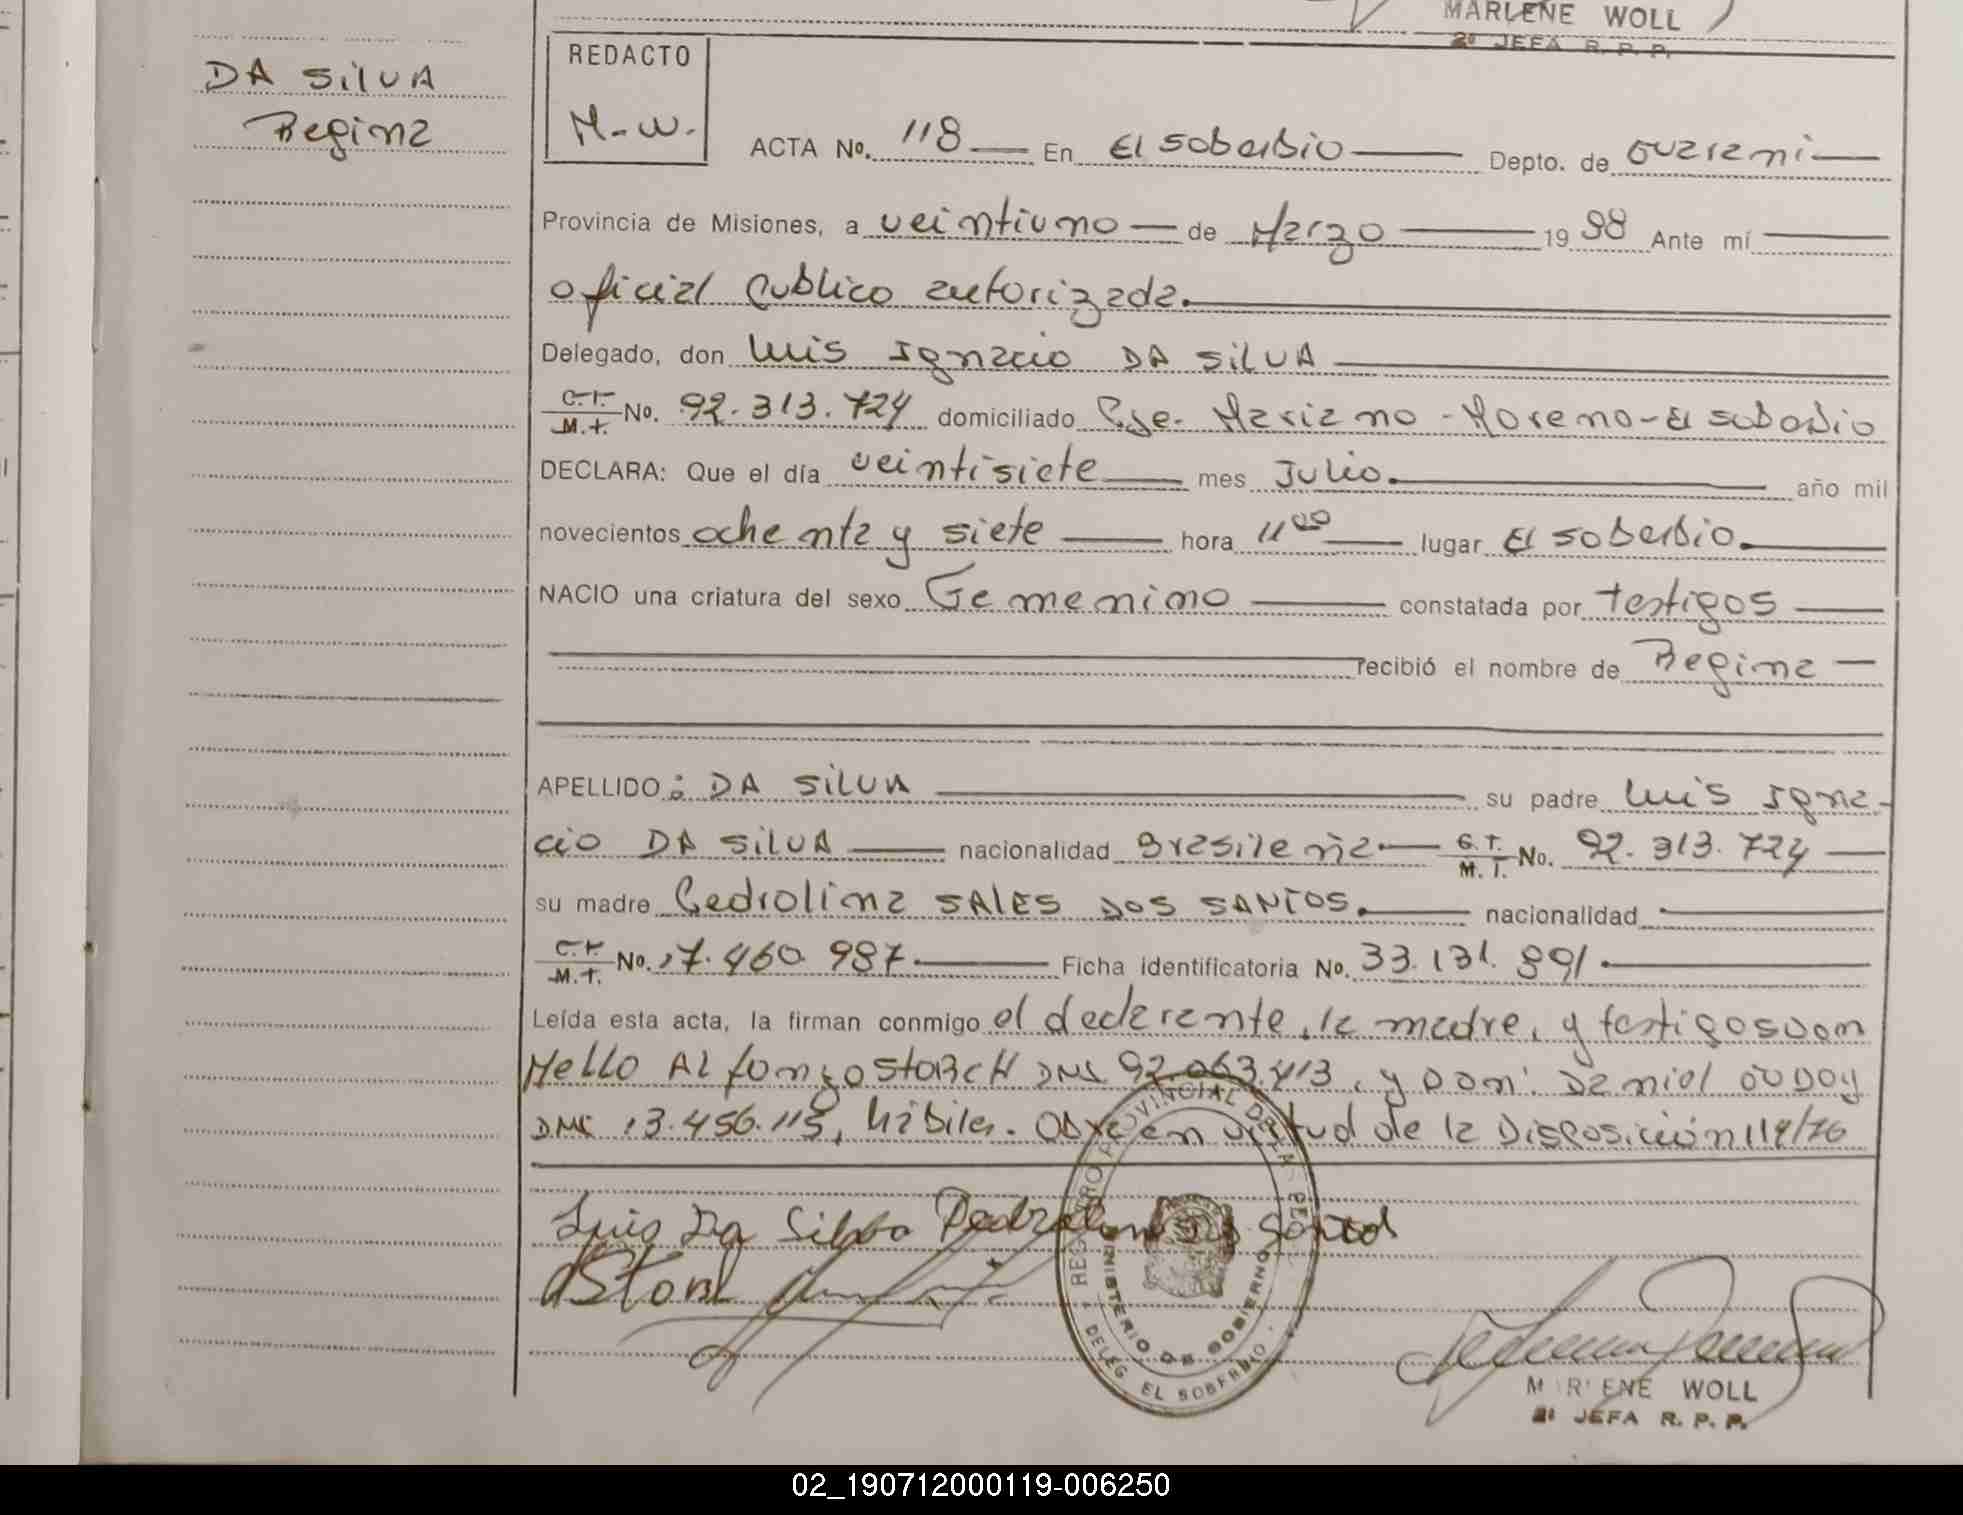 MARLENE WOLL
2º JEFA R. P. P.
DA SilVA
Regina
REDACTO
M-W.
ACTA No. 118 En El Soberbio Depto. de Guarani
Provincia de Misiones, a veintiuno de Marzo 1988 Ante mí
oficial publico autorizada.
Delegado, don Luis Ignacio DA SilVA
C.I. M.I. No. 92.313.724 domiciliado Pje. Mariano - Moreno - El Soberbio
DECLARA: Que el día veintisiete mes Julio. año mil
novecientos ochenta y siete hora 11 00 lugar El Soberbio.
NACIO una criatura del sexo Femenino constatada por testigos
recibió el nombre de Regina
APELLIDO: DA SilVA su padre Luis Igna-
cio DA SilVA nacionalidad Brasileña C.I. M.I. No. 92.313.724
su madre Pedrolina SALES DOS SANTOS. nacionalidad
C.I. M.I. No. 17.460.987. Ficha identificatoria No. 33.131.891.
Leída esta acta, la firman conmigo el declarante, la madre, y testigos Don
Mello Alfonzo STORCH DNI 92.063.413, y Don: Daniel GODOY
DNI 13.456.115, hábiles. Obra en virtud de la Disposición 114/76
Luis Da Silva Pedrolina Dos Santos
AStorch
REGISTRO PROVINCIAL DE LAS PERS
MINISTERIO DE GOBIERNO
DELEG. EL SOBERBIO
MARLENE WOLL
2º JEFA R. P. P.
02_190712000119-006250